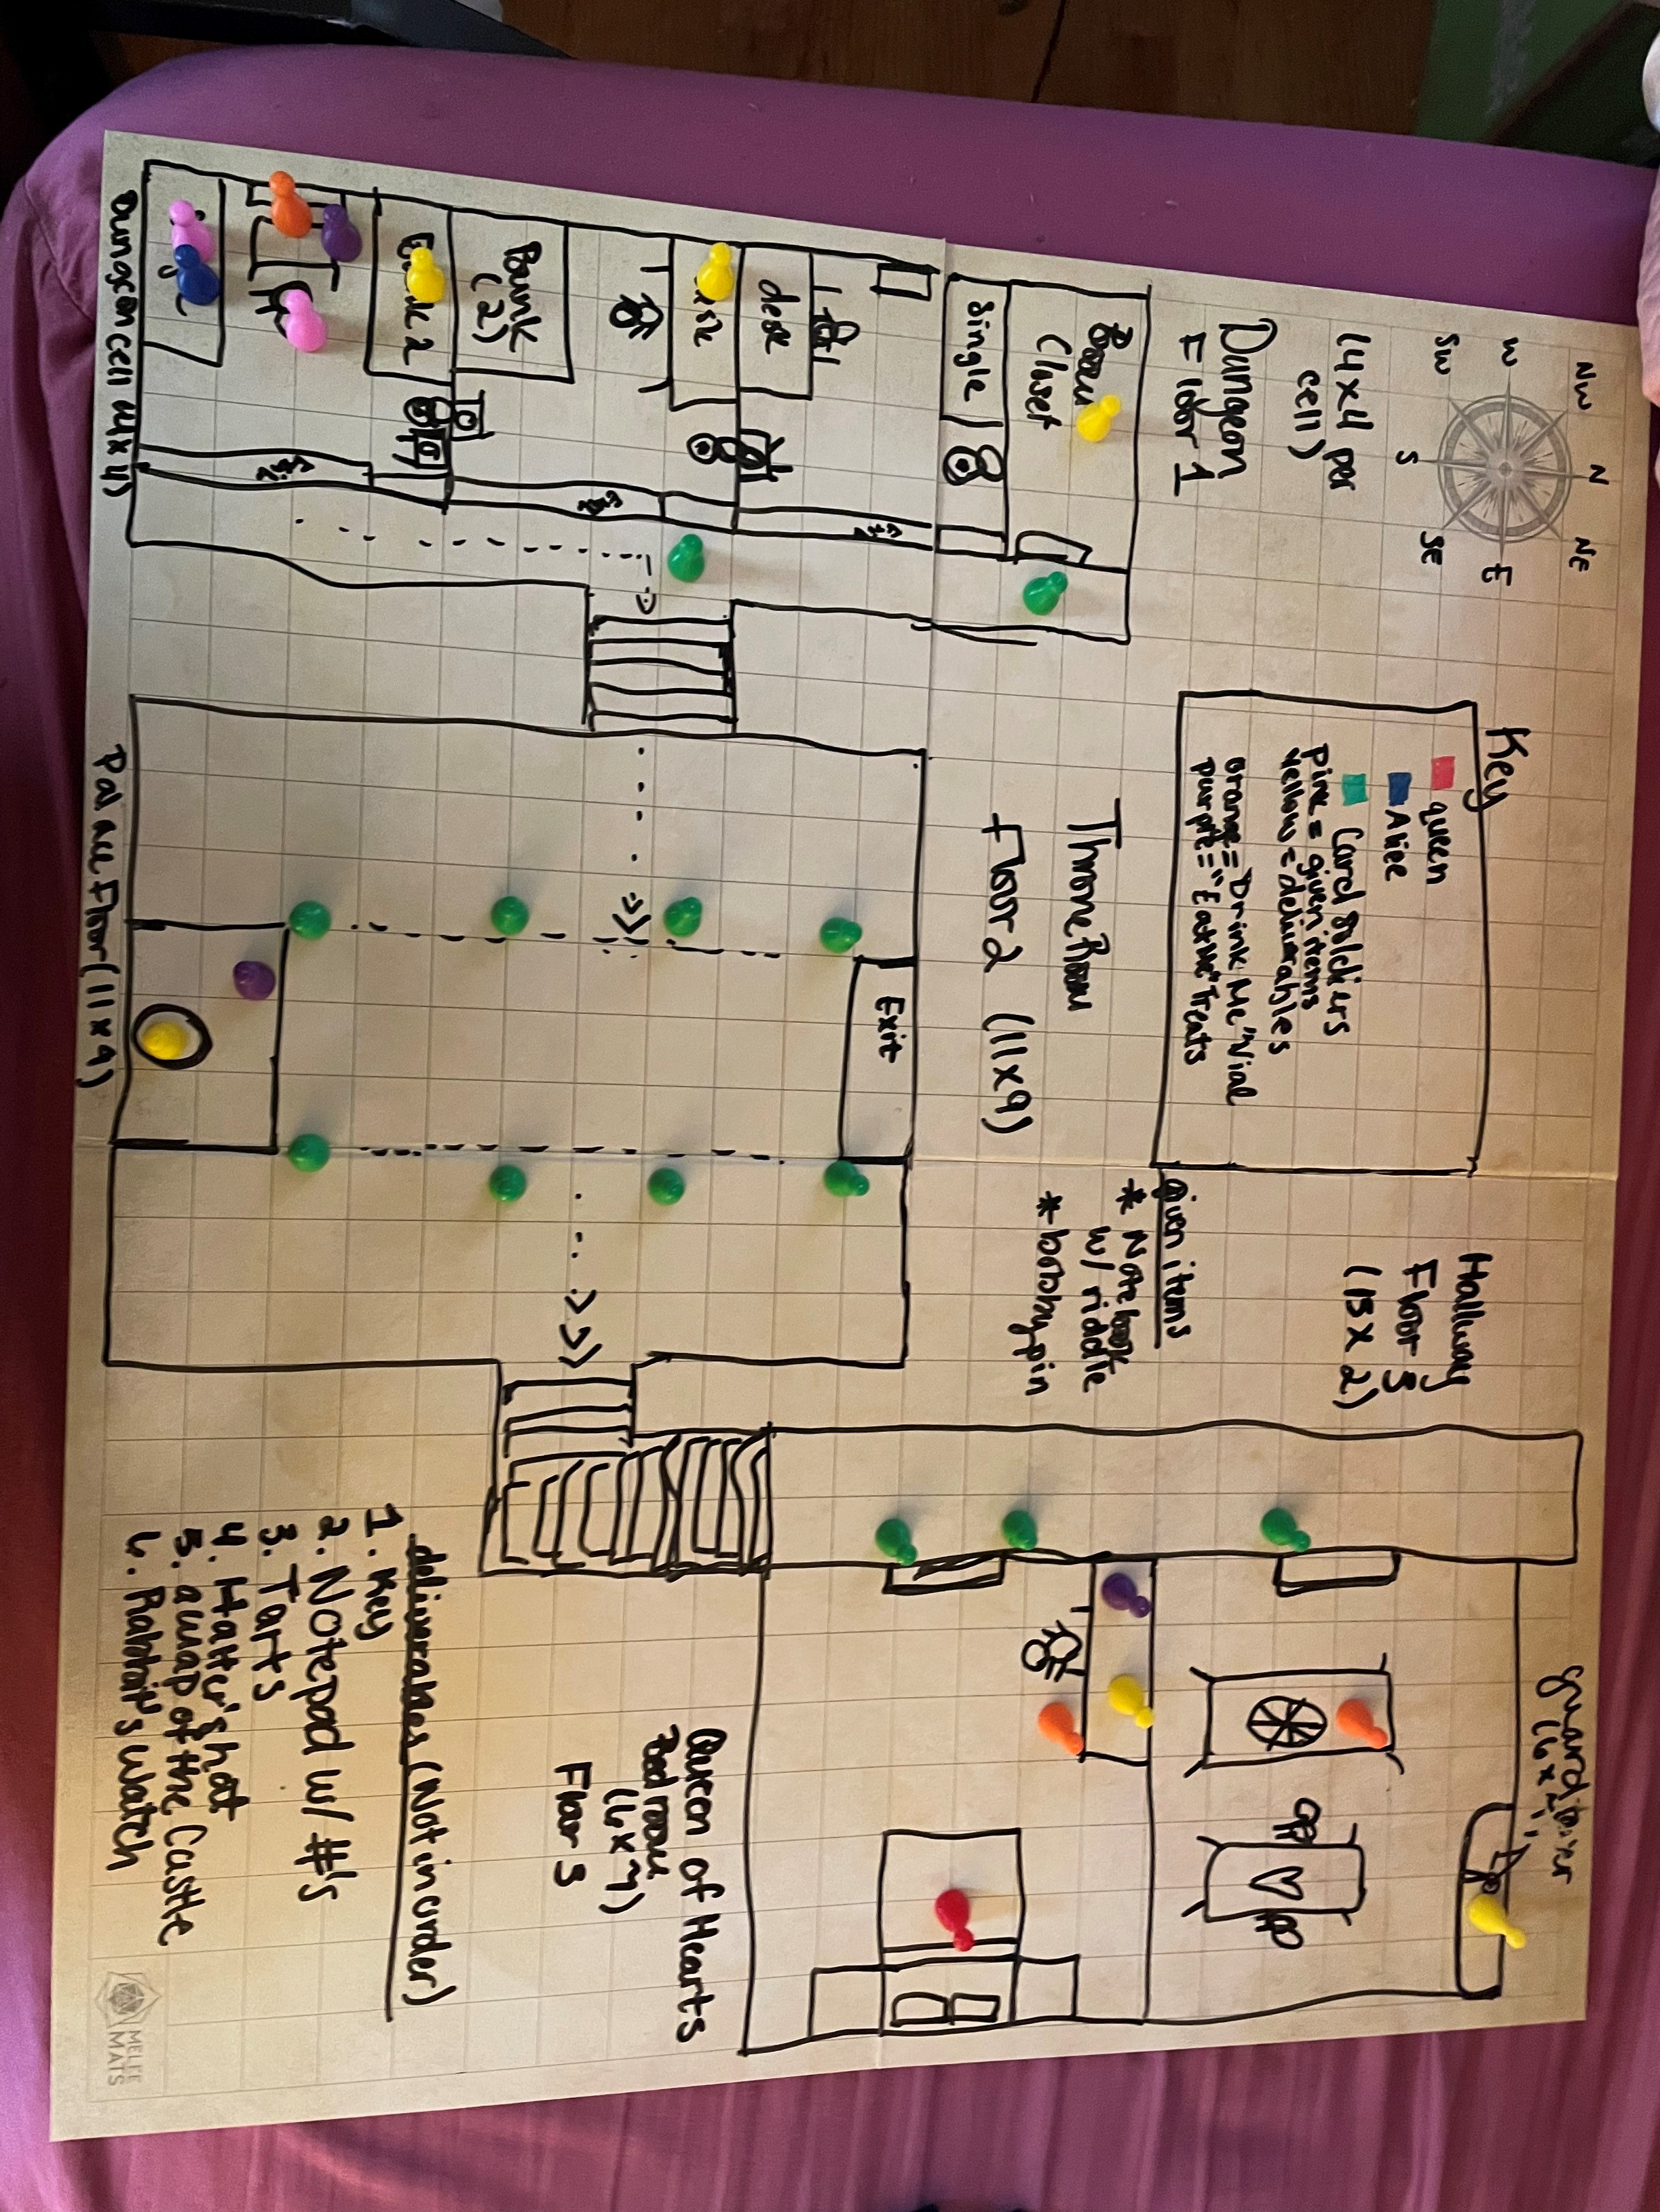 NW
N
NE
W
E
SW
S
SE
(4x4 per
cell)
Dungeon
Floor 1
Broom
Closet
Single
desk
Bunk
(2)
Dungeon cell (4x4)
Key
queen
Alice
Card Soldiers
Pink = given items
Yellow = deliverables
Orange = "Drink Me" Vial
purple = "Eat Me" Treats
Throne Room
Floor 2 (11x9)
Exit
Palace Floor (11x9)
Hallway
Floor 3
(15x2)
Given items
* Notebook
w/ riddle
* bobby pin
Queen of Hearts
Bedroom
(6x9)
Floor 3
deliverables (Not in order)
1. Key
2. Notepad w/ #'s
3. Tarts
4. Hatter's hat
5. a map of the Castle
6. Rabbit's watch
MELEE
MATS